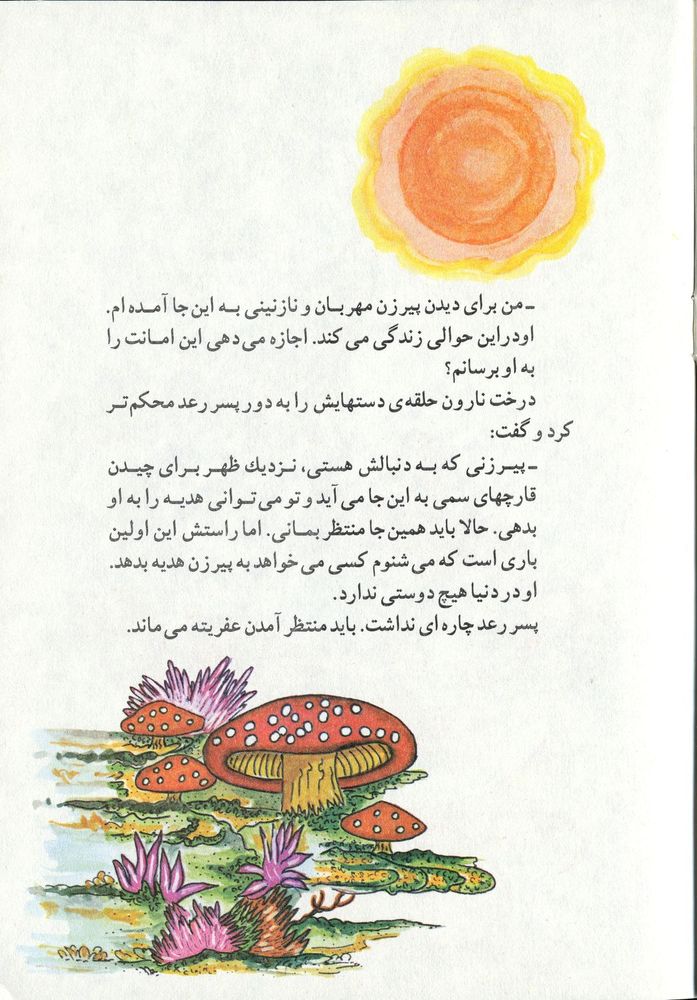 ـ من برای دیدن پیرزن مهربان و نازنینی به این‌جا آمده ام.
او در این حوالی زندگی می کند. اجازه می دهی این امانت را
به او برسانم؟
درخت نارون حلقه‌ی دستهایش را به دور پسر رعد محکم‌تر
کرد و گفت:
ـ پیرزنی که به دنبالش هستی، نزدیك ظهر برای چیدن
قارچهای سمی به این‌جا می آید و تو می توانی هدیه را به او
بدهی. حالا باید همین‌جا منتظر بمانی. اما راستش این اولین
باری است که می شنوم کسی می خواهد به پیرزن هدیه بدهد.
او در دنیا هیچ دوستی ندارد.
پسر رعد چاره ای نداشت. باید منتظر آمدن عفریته می ماند.